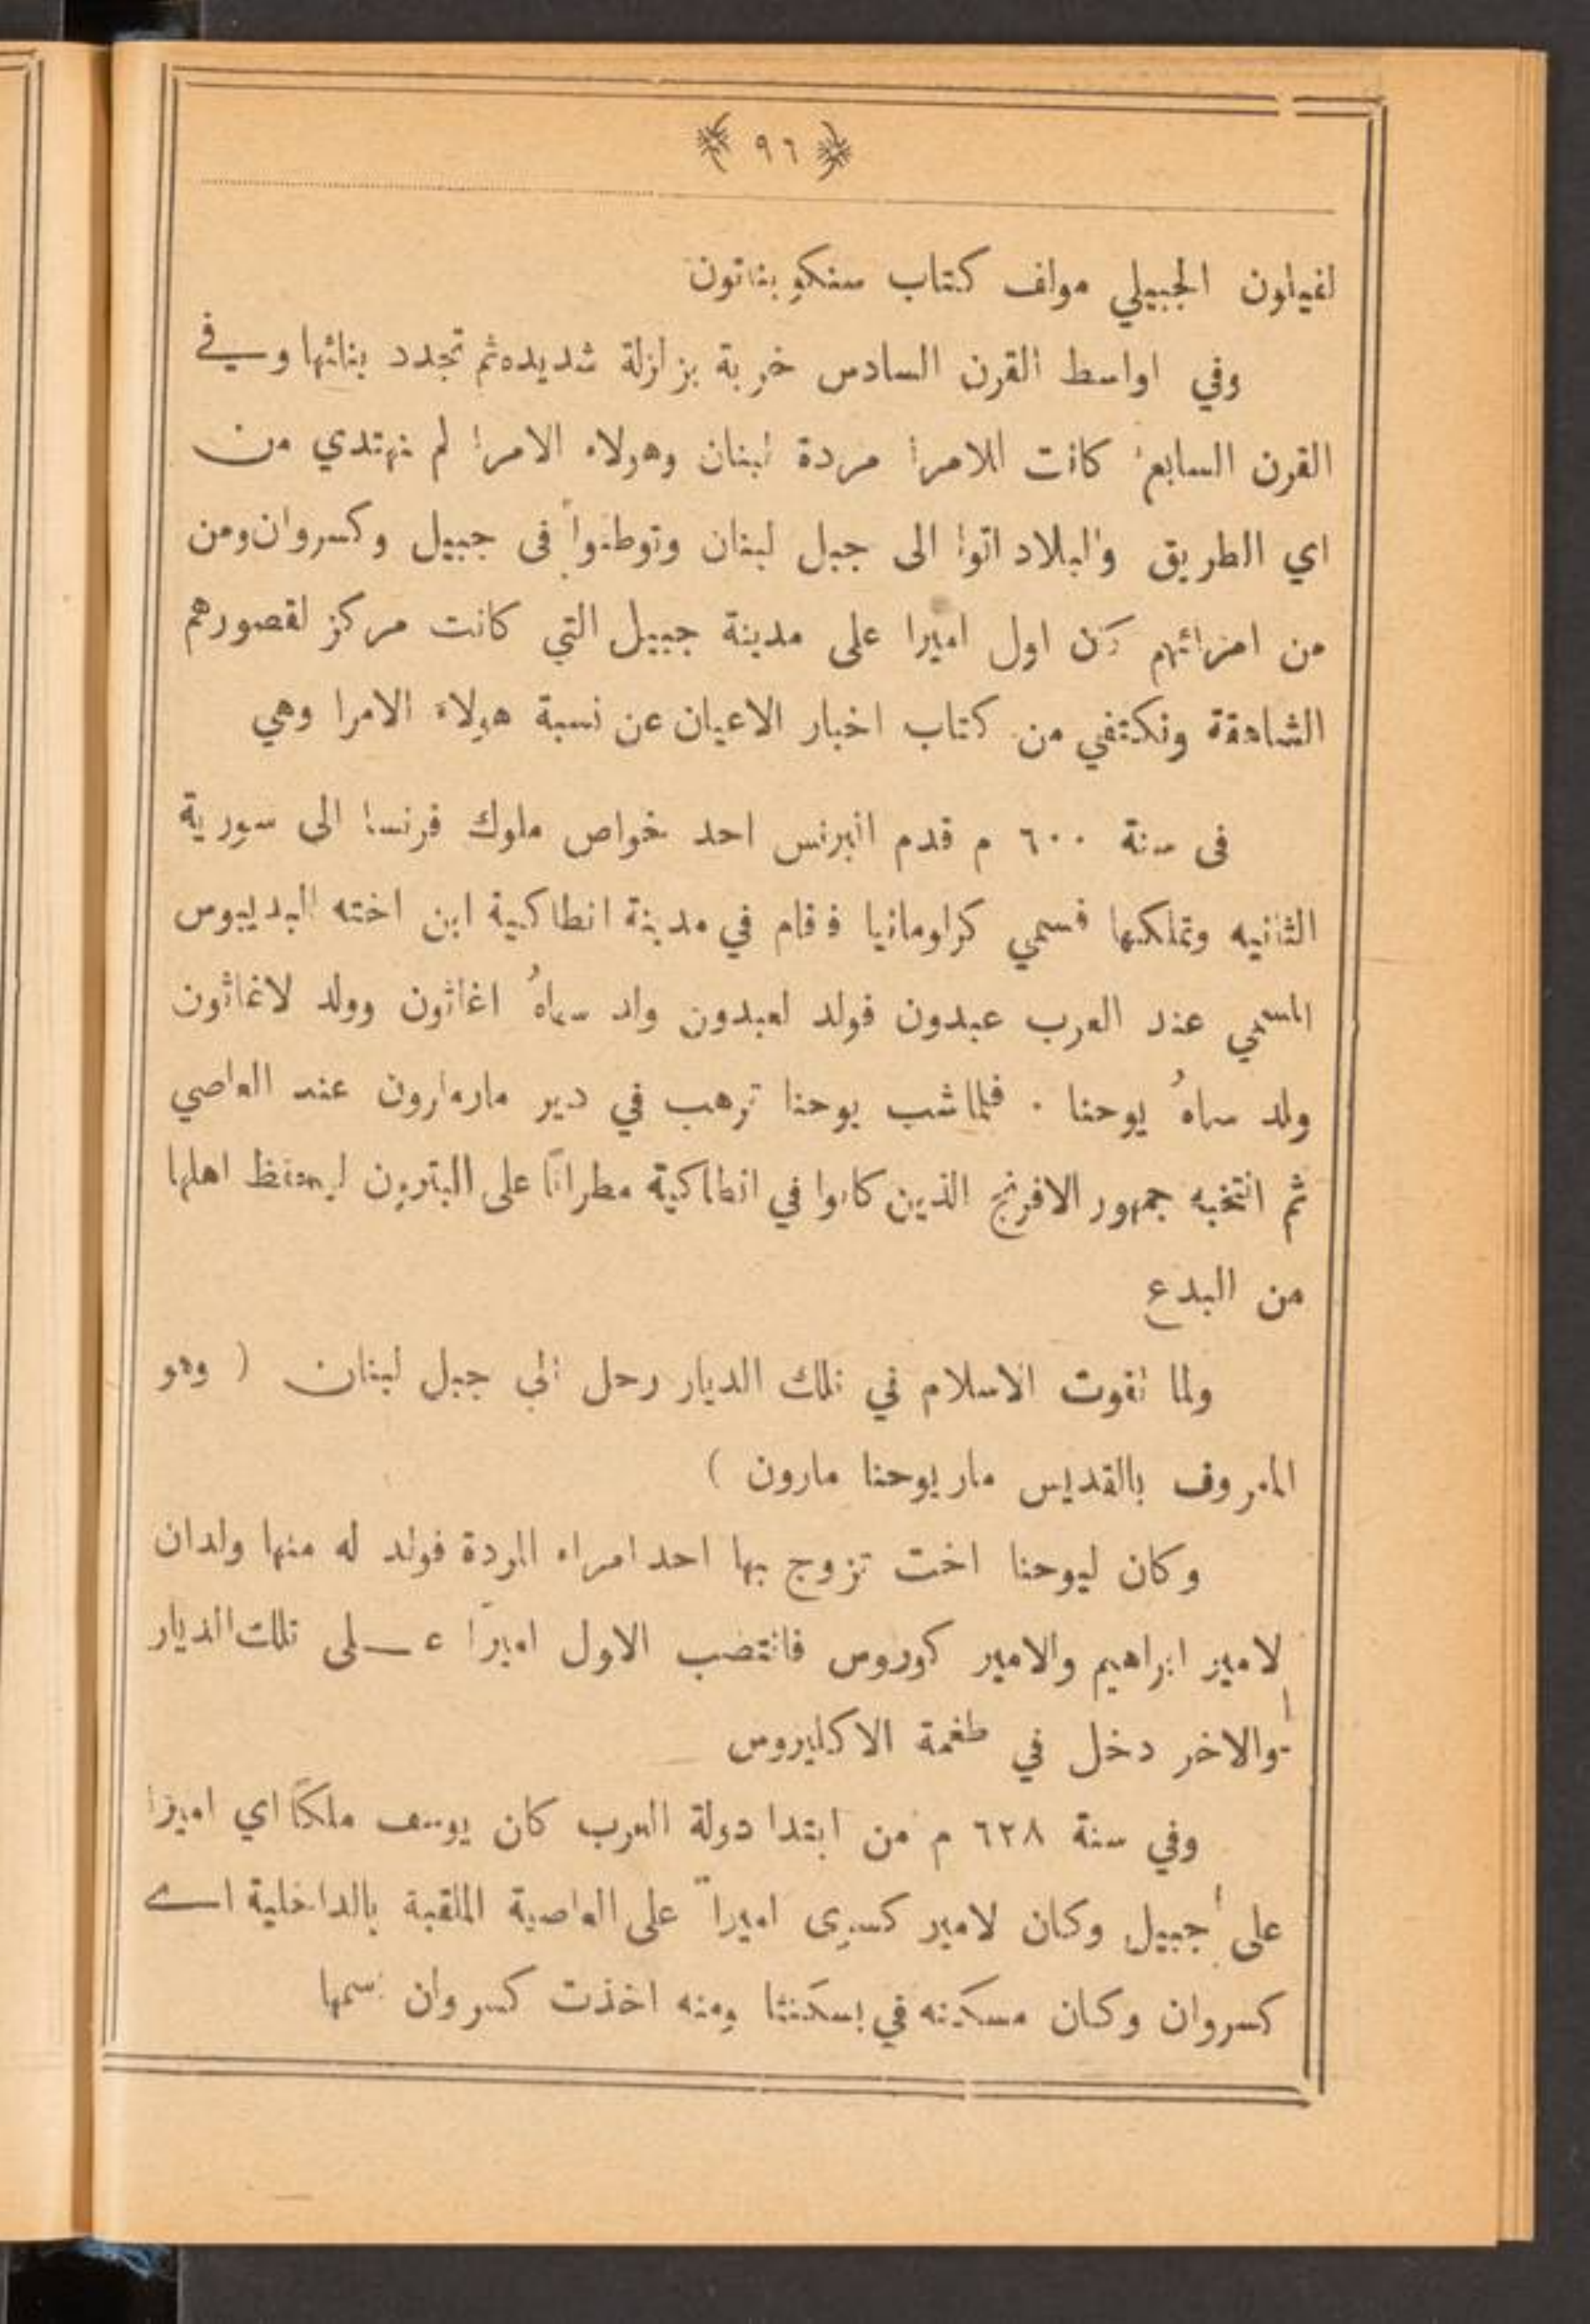 ﴿ ٩٦ ﴾
لفيلون الجبيلي مولف كتاب سنكو بناتون
وفي اواسط القرن السادس خربة بزلزلة شديده ثم تجدد بنائها وفي
القرن السابع كانت للامرا مردة لبنان وهولاء الامرا لم نهتدي من
اي الطريق والبلاد اتوا الى جبل لبنان وتوطنوا فى جبيل وكسروان ومن
من امرائهم كان اول اميرا على مدينة جبيل التي كانت مركز لقصورهم
الشاهقة ونكتفي من كتاب اخبار الاعيان عن نسبة هولاء الامرا وهي
فى سنة ٦٠٠ م قدم البرنس احد خواص ملوك فرنسا الى سورية
الثانيه وتملكها فسمي كراومانيا فقام في مدينة انطاكية ابن اخته البديبوس
المسمي عند العرب عبدون فولد لعبدون ولد سماهُ اغاثون وولد لاغاثون
ولد سماهُ يوحنا . فلما شب يوحنا ترهب في دير مارمارون عند العاصي
ثم انتخبه جمهور الافرنج الذين كانوا في انطاكية مطرانًا على البترون ليحفظ اهلها
من البدع
ولما تقوت الاسلام في تلك الديار رحل الي جبل لبنان ( وهو
المعروف بالقديس مار يوحنا مارون )
وكان ليوحنا اخت تزوج بها احد امراء المردة فولد له منها ولدان
لامير ابراهيم والامير كوروس فانتضب الاول اميرًا عـــلى تلك الديار
والاخر دخل في طغمة الاكليروس
وفي سنة ٦٢٨ م من ابتدا دولة العرب كان يوسف ملكًا اي اميرا
على جبيل وكان لامير كسرى اميراً على العاصية الملقبة بالداخلية اي
كسروان وكان مسكنه في بسكنتا ومنه اخذت كسروان اسمها